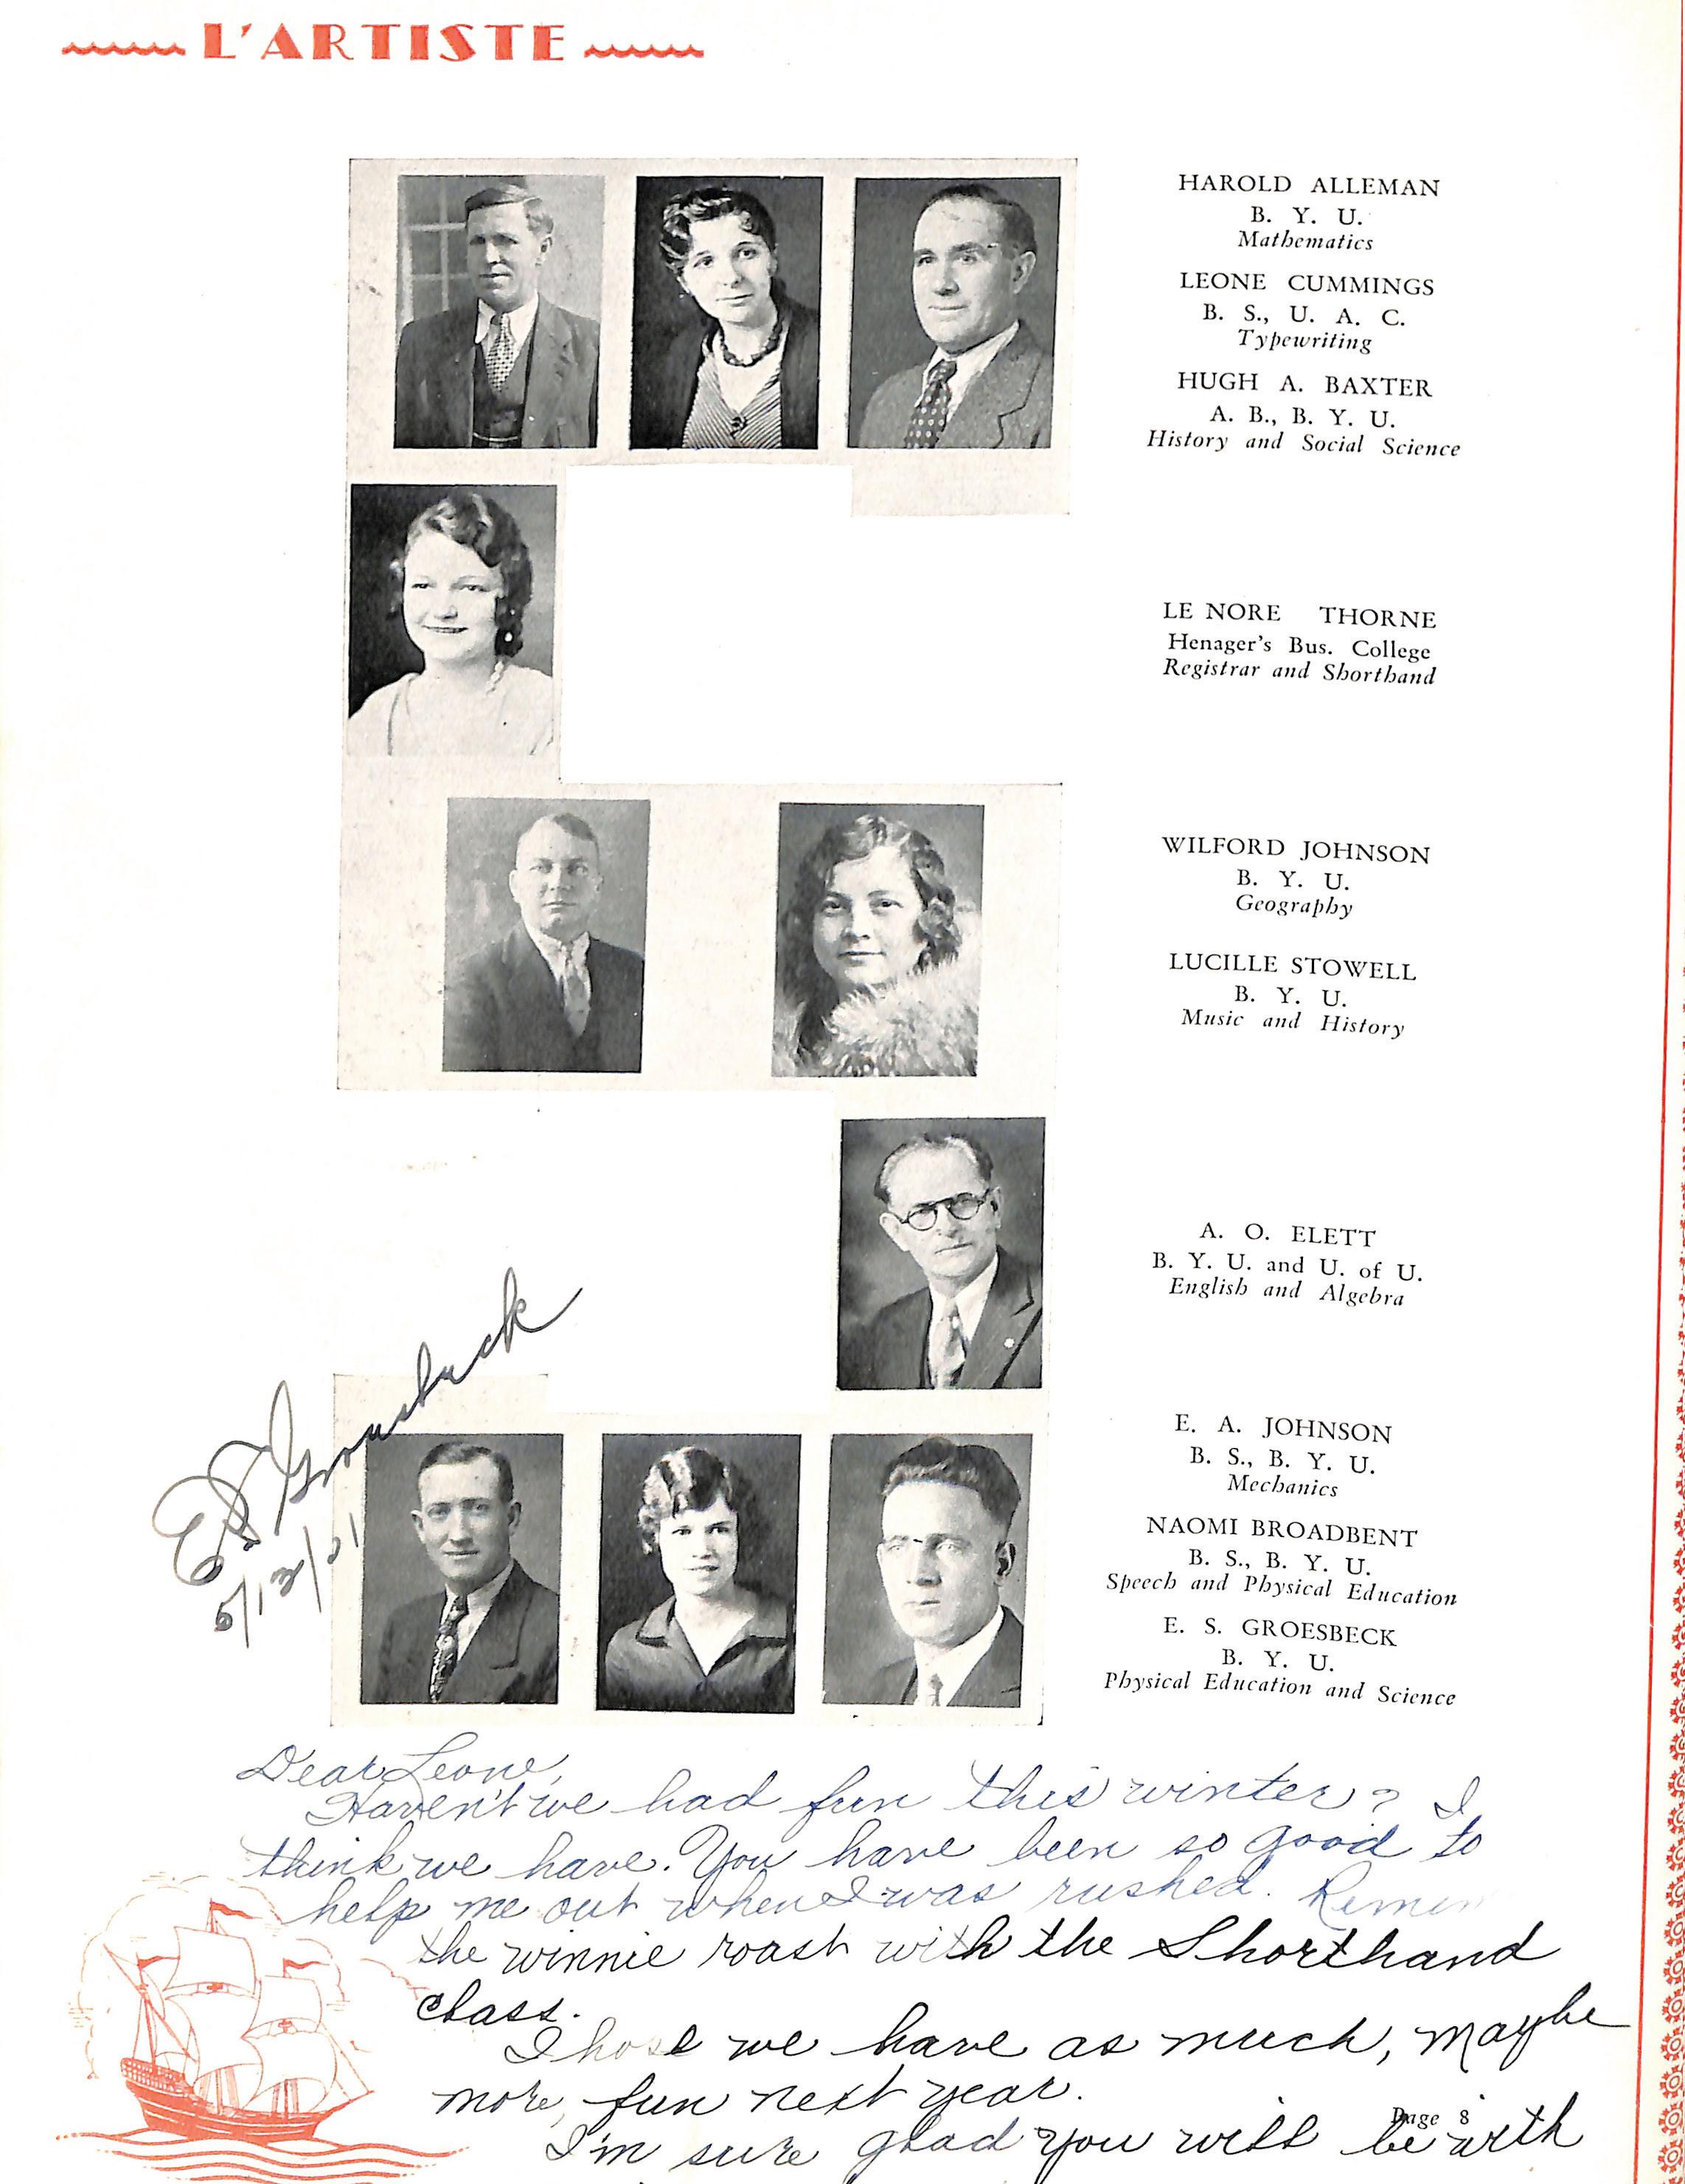 L'ARTISTE
HAROLD ALLEMAN
B. Y. U.
Mathematics
LEONE CUMMINGS
B. S., U. A. C.
Typewriting
HUGH A. BAXTER
A. B., B. Y. U.
History and Social Science
LE NORE THORNE
Henager's Bus. College
Registrar and Shorthand
WILFORD JOHNSON
B. Y. U.
Geography
LUCILLE STOWELL
B. Y. U.
Music and History
A. O. ELETT
B. Y. U. and U. of U.
English and Algebra
E. A. JOHNSON
B. S., B. Y. U.
Mechanics
NAOMI BROADBENT
B. S., B. Y. U.
Speech and Physical Education
E. S. GROESBECK
B. Y. U.
Physical Education and Science
E S Groesbeck
Dear Leone,
Haven't we had fun this winter? I
think we have. You have been so good to
help me out when I was rushed. Remem
the winnie roast with the Shorthand
class.
I hope we have as much, maybe
more, fun next year.
I'm sure glad you will be with
Page 8